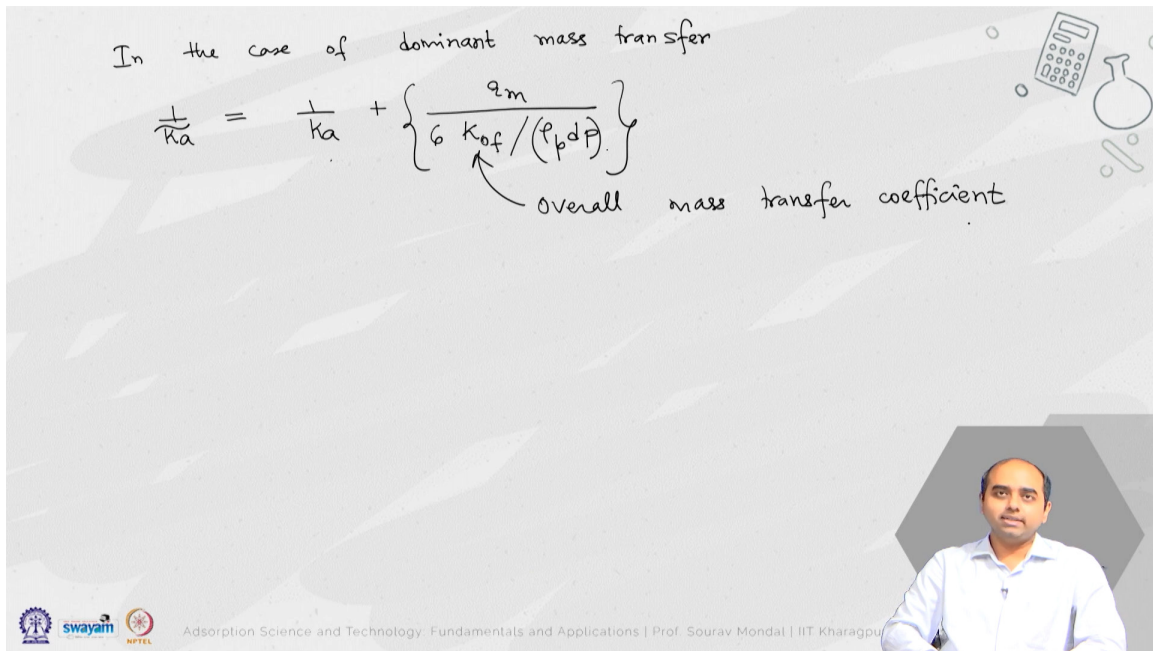 In the case of dominant mass transfer
1/k̃a = 1/ka + { qm / (6 Kof/(ρp dp)) }
overall mass transfer coefficient
swayam
NPTEL
Adsorption Science and Technology: Fundamentals and Applications | Prof. Sourav Mondal | IIT Kharagpu